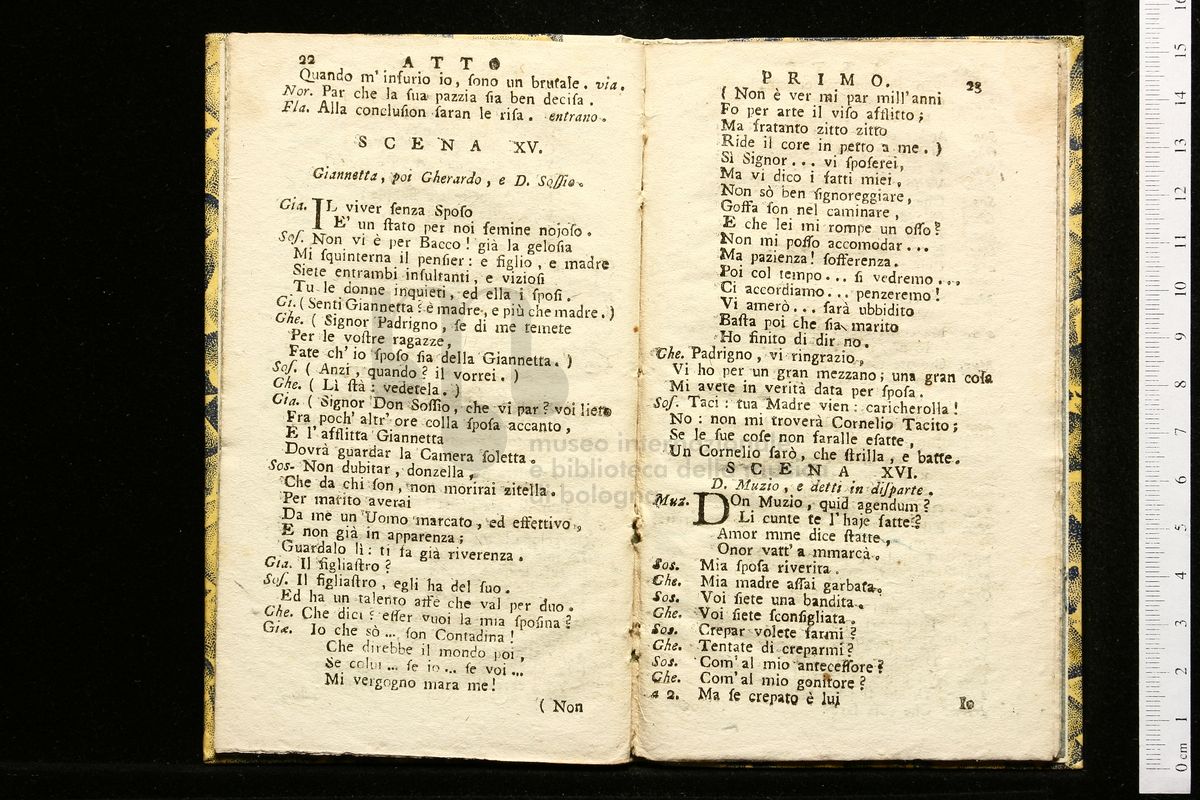 22 ATTO
Quando m' infurio io, sono un brutale. via.
Nor. Par che la sua pazzia sia ben decisa.
Fla. Alla conclusion saran le risa. entrano.
SCENA XV.
Giannetta, poi Gherardo, e D. Sossio.
Gia. IL viver senza Sposo
E' un stato per noi femine nojoso.
Sos. Non vi è per Bacco! già la gelosia
Mi squinterna il pensier: e figlio, e madre
Siete entrambi insultanti, e viziosi
Tu le donne inquieti, ed ella i sposi.
Gi. (Senti Giannetta? è madre, e più che madre.)
Ghe. ( Signor Padrigno, se di me temete
Per le vostre ragazze,
Fate ch' io sposo sia della Giannetta. )
Sos. ( Anzi, quando? il vorrei. )
Ghe. ( Lì stà: vedetela. )
Gia. ( Signor Don Sossio, che vi par? voi lieto
Fra poch' altr' ore colla sposa accanto,
E l' afflitta Giannetta
Dovrà guardar la Camera soletta.
Sos. Non dubitar, donzella,
Che da chi son, non morirai zitella.
Per marito averai
Da me un Uomo marcato, ed effettivo,
E non già in apparenza;
Guardalo lì: ti fa già riverenza.
Gia. Il figliastro?
Sos. Il figliastro, egli ha del suo.
Ed ha un talento affè che val per duo.
Ghe. Che dici? esser vuoi la mia sposina?
Gia. Io che sò ... son Contadina!
Che direbbe il mondo poi,
Se colui ... se io ... se voi ...
Mi vergogno mara me!
( Non
PRIMO. 23
( Non è ver mi par mill' anni
Fo per arte il viso afflitto;
Ma fratanto zitto zitto
Ride il core in petto a me. )
Sì Signor... vi sposerei,
Ma vi dico i fatti miei,
Non sò ben signoreggiare,
Goffa son nel caminare,
E che lei mi rompe un osso?
Non mi posso accomodar...
Ma pazienza! sofferenza.
Poi col tempo... si vedremo...,
Ci accordiamo... penzeremo!
Vi amerò... sarà ubbidito
Basta poi che sia marito
Ho finito di dir no.
Ghe. Padrigno, vi ringrazio,
Vi ho per un gran mezzano; una gran cosa
Mi avete in verità data per sposa.
Sos. Taci: tua Madre vien: caricherolla!
No: non mi troverà Cornelio Tacito;
Se le sue cose non faralle esatte,
Un Cornelio sarò, che strilla, e batte.
SCENA XVI.
D. Muzio, e detti in disparte.
Muz. DOn Muzio, quid agendum?
Li cunte te l' haje fatte?
Amor mme dice statte,
Onor vatt' a mmarcà.
Sos. Mia sposa riverita.
Ghe. Mia madre assai garbata.
Sos. Voi siete una bandita.
Ghe. Voi siete sconsigliata.
Sos. Crepar volete farmi?
Ghe. Tentate di creparmi?
Sos. Com' al mio antecessore?
Ghe. Com' al mio gonitore?
a 2. Ma se crepato è lui
Io